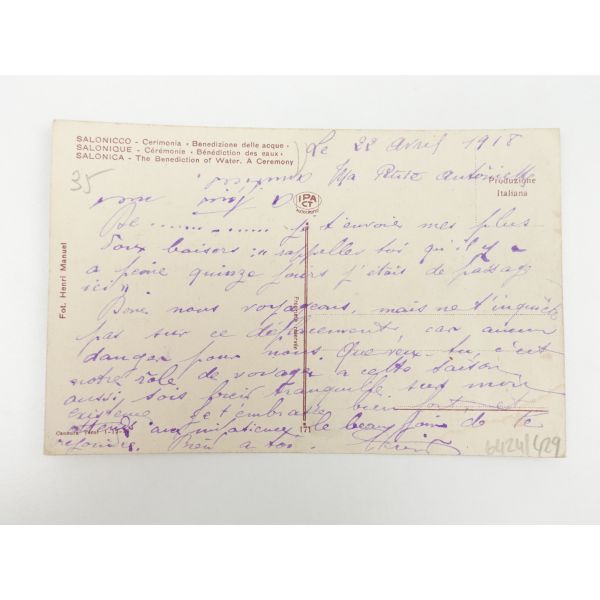 SALONICCO - Cerimonia • Benedizione delle acque •
SALONIQUE - Cérémonie • Bénédiction des eaux •
SALONICA - The Benediction of Water. A Ceremony
35
Le 28 Avril 1918
Ma Petite Antoinette
Produzione
Italiana
IPA
CT
De .............. je t'envoie mes plus
doux baisers: "rappelles toi qu'il y
a peine quinze jours j'étais de passage
ici".
Donc nous voyageons, mais ne t'inquiète
pas sur ce déplacement, car aucun
danger pour nous. Que veux-tu, c'est
notre rôle de voyager a cette saison,
aussi, sois bien tranquille sur mon
existence je t'embrasse bien fortement
le beau jour de te
Bien a toi.
Fot. Henri Manuel
171
6424/429